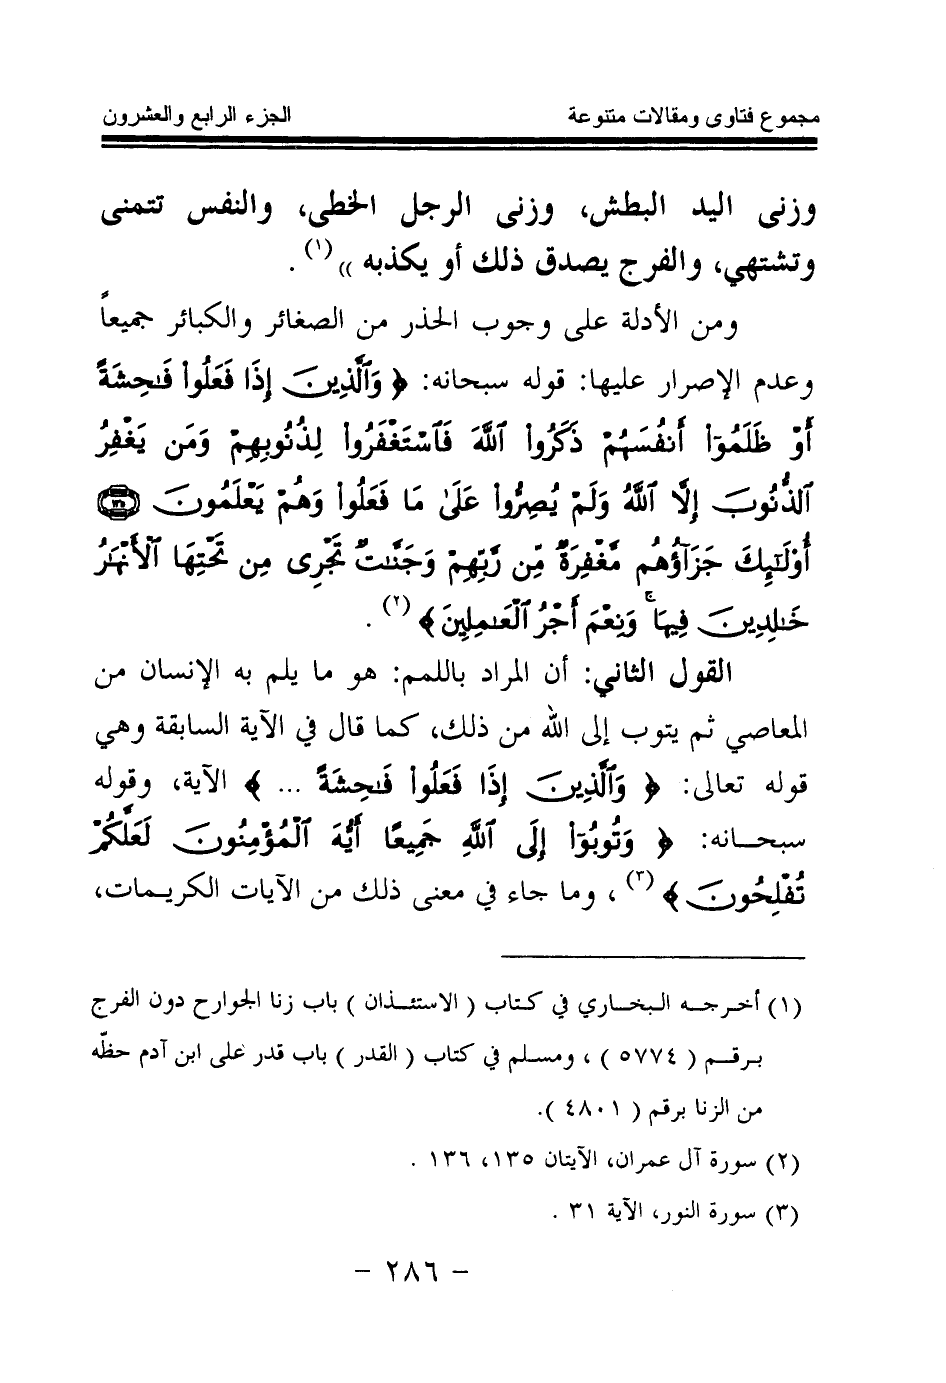 مجموع فتاوى ومقالات متنوعة الجزء الرابع والعشرون
وزنى اليد البطش، وزنى الرجل الخطى، والنفس تتمنى
وتشتهي، والفرج يصدق ذلك أو يكذبه )) (١) .
ومن الأدلة على وجوب الحذر من الصغائر والكبائر جميعاً
وعدم الإصرار عليها: قوله سبحانه: ﴿ وَٱلَّذِينَ إِذَا فَعَلُوا۟ فَـٰحِشَةً
أَوْ ظَلَمُوٓا۟ أَنفُسَهُمْ ذَكَرُوا۟ ٱللَّهَ فَٱسْتَغْفَرُوا۟ لِذُنُوبِهِمْ وَمَن يَغْفِرُ
ٱلذُّنُوبَ إِلَّا ٱللَّهُ وَلَمْ يُصِرُّوا۟ عَلَىٰ مَا فَعَلُوا۟ وَهُمْ يَعْلَمُونَ
أُو۟لَـٰٓئِكَ جَزَآؤُهُم مَّغْفِرَةٌ مِّن رَّبِّهِمْ وَجَنَّـٰتٌ تَجْرِى مِن تَحْتِهَا ٱلْأَنْهَـٰرُ
خَـٰلِدِينَ فِيهَا ۚ وَنِعْمَ أَجْرُ ٱلْعَـٰمِلِينَ ﴾ (٢) .
القول الثاني: أن المراد باللمم: هو ما يلم به الإنسان من
المعاصي ثم يتوب إلى الله من ذلك، كما قال في الآية السابقة وهي
قوله تعالى: ﴿ وَٱلَّذِينَ إِذَا فَعَلُوا۟ فَـٰحِشَةً ... ﴾ الآية، وقوله
سبحـــانه: ﴿ وَتُوبُوٓا۟ إِلَى ٱللَّهِ جَمِيعًا أَيُّهَ ٱلْمُؤْمِنُونَ لَعَلَّكُمْ
تُفْلِحُونَ ﴾ (٣) ، وما جاء في معنى ذلك من الآيات الكريـمات،
(١) أخـرجـــه البـخــاري في كـتاب ( الاستئــذان ) باب زنا الجوارح دون الفرج
بـرقــم ( ٥٧٧٤ ) ، ومسلـم في كتاب ( القدر ) باب قدر على ابن آدم حظّه
من الزنا برقم ( ٤٨٠١ ).
(٢) سورة آل عمران، الآيتان ١٣٥، ١٣٦ .
(٣) سورة النور، الآية ٣١ .
– ٢٨٦ –